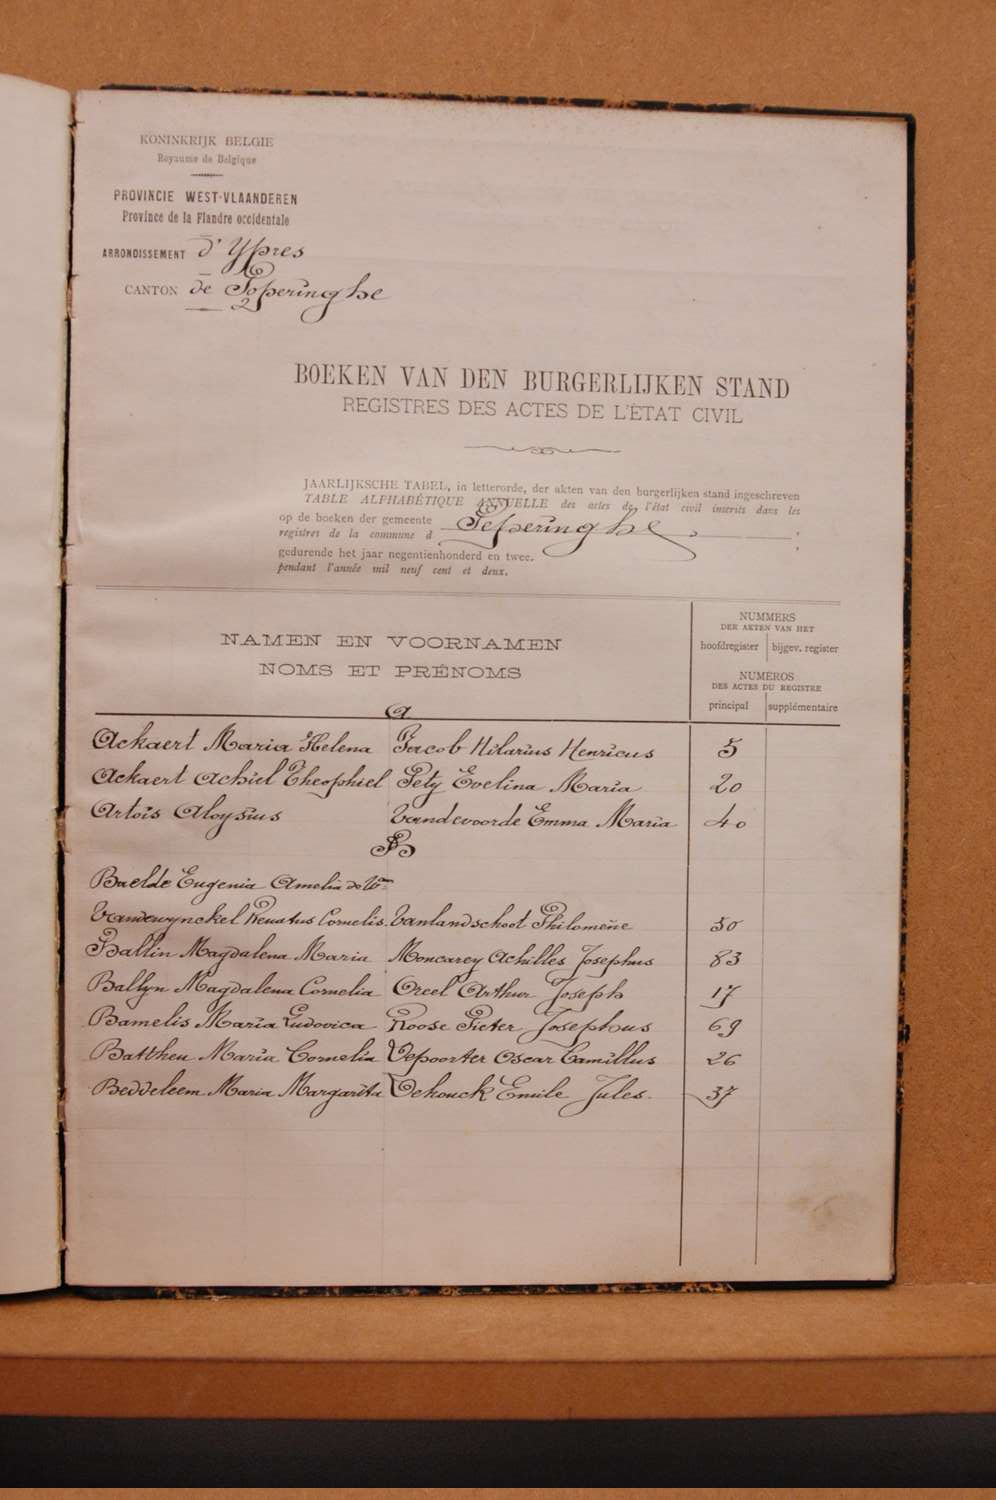 KONINKRIJK BELGIE
Royaume de Belgique
PROVINCIE WEST-VLAANDEREN
Province de la Flandre occidentale
ARRONDISSEMENT d'Ypres
CANTON de Poperinghe
BOEKEN VAN DEN BURGERLIJKEN STAND
REGISTRES DES ACTES DE L'ÉTAT CIVIL
JAARLIJKSCHE TABEL, in letterorde, der akten van den burgerlijken stand ingeschreven
TABLE ALPHABÉTIQUE ANNUELLE des actes de l'état civil inscrits dans les
op de boeken der gemeente Poperinghe
registres de la commune d
gedurende het jaar negentienhonderd en twee.
pendant l'année mil neuf cent et deux.
NAMEN EN VOORNAMEN
NOMS ET PRÉNOMS
NUMMERS
DER AKTEN VAN HET
hoofdregister bijgev. register
NUMÉROS
DES ACTES DU REGISTRE
principal supplémentaire
A
Ackaert Maria Helena Jacob Hilarius Henricus 5
Ackaert Achiel Theophiel Pety Evelina Maria 20
Artois Aloysius Vandevoorde Emma Maria 40
B
Baelde Eugenia Amelia
Vandewynckel Renatus Cornelis. Vanlandschoot Philomène 50
Ballin Magdalena Maria Moncarey Achilles Josephus 83
Ballyn Magdalena Cornelia Oreel Arthur Joseph 17
Bamelis Maria Ludovica Roose Pieter Josephus 69
Battheu Maria Cornelia Depoorter Oscar Camillus 26
Beddeleem Maria Margarita Dehouck Emile Jules. 37